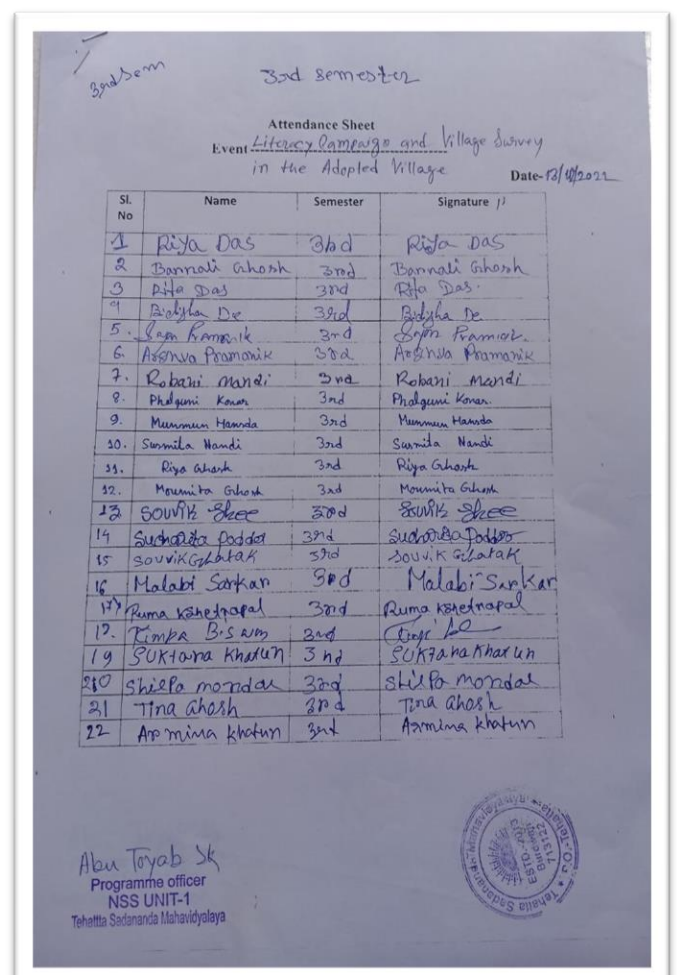 3rd Sem
3rd Semester
Attendance Sheet
Event Literacy Campaign and Village Survey
in the Adopted Village
Date-13/10/2022
Sl. No Name Semester Signature
1 Riya Das 3rd Riya Das
2 Barnali Ghosh 3rd Barnali Ghosh
3 Rita Das 3rd Rita Das.
4 Bidisha De 3rd Bidisha De
5. Pramanik 3rd
6. Pramanik 3rd Pramanik
7. Robani Mandi 3rd Robani Mandi
8. Phalguni Konar 3rd Phalguni Konar.
9. Munmun Hansda 3rd Munmun Hansda
10. Susmita Nandi 3rd Susmita Nandi
11. Riya Ghosh 3rd Riya Ghosh
12. Moumita Ghosh 3rd Moumita Ghosh
13 Souvik Shee 3rd Souvik Shee
14 Sucharita Poddar 3rd Sucharita Poddar
15 Souvik Ghatak 3rd Souvik Ghatak
16 Malabi Sarkar 3rd Malabi Sarkar
17 Ruma Kshetrapal 3rd Ruma Kshetrapal
3rd
19 Suktana Khatun 3rd Suktana Khatun
20 Shilpa Mondal 3rd Shilpa Mondal
21 Tina Ghosh 3rd Tina Ghosh
22 Armina Khatun 3rd Armina Khatun
Abu Toyab Sk
Programme officer
NSS UNIT-1
Tehattta Sadananda Mahavidyalaya
ESTD-2013
713122